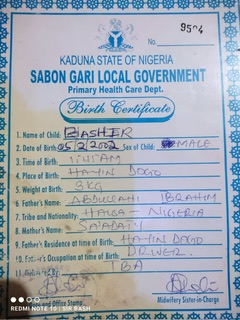 9504
No.
KADUNA STATE OF NIGERIA
SABON GARI LOCAL GOVERNMENT
Primary Health Care Dept.
Birth Certificate
1. Name of Child: BASHIR
2. Date of Birth 05/2/2002 Sex of Child: MALE
3. Time of Birth: 11:15AM
4. Place of Birth: HAYIN DOGO
5. Weight of Birth: 3KG
6. Father's Name: ABDULLAHI IBRAHIM
7. Tribe and Nationality: HAUSA - NIGERIA
8. Mother's Name: SA'ADATU
9. Father's Residence at time of Birth: HAYIN DOGO
10. Father's Occupation at time of Birth: DRIVER
11.
Official Stamp
Midwifery Sister-in-Charge
REDMI NOTE 10 | SIR RASH